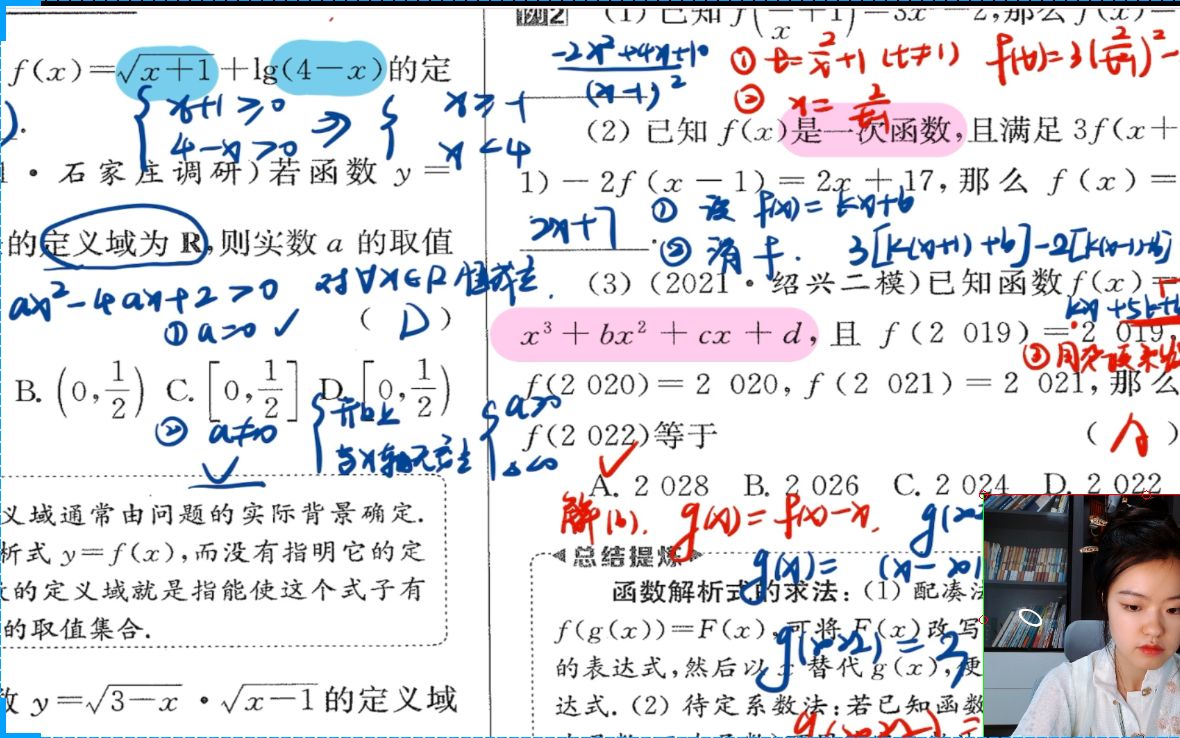 f(x)=√(x+1)+lg(4-x)的定
{x+1≥0 ⇒ {x≥-1
4-x>0 x<4
石家庄调研)若函数 y=
的定义域为 R,则实数 a 的取值
ax²-4ax+2>0 对∀x∈R恒成立.
①a=0✓ ( D )
B. (0,1/2) C. [0,1/2] D. [0,1/2)
② a≠0 {开口上 {a>0
与x轴无交点 Δ<0
义域通常由问题的实际背景确定.
析式 y=f(x),而没有指明它的定
的定义域就是指能使这个式子有
的取值集合.
数 y=√(3-x)·√(x-1)的定义域
例2 (1)已知 f(2/x+1)=3x-2,那么 f(x)=
-2x²+4x+10
(x-1)²
① t=2/x+1 (t≠1) f(t)=3(2/(t-1))²-
② x=2/(t-1)
(2)已知 f(x)是一次函数,且满足 3f(x+
1)-2f(x-1)=2x+17,那么 f(x)=
2x+7 ① 设 f(x)=kx+b
② 消f. 3[k(x+1)+b]-2[k(x-1)+b]
(3)(2021·绍兴二模)已知函数 f(x)=
kx+5k+b
x³+bx²+cx+d,且 f(2 019)=2 019,
f(2 020)=2 020,f(2 021)=2 021,那么
f(2 022)等于 ( A )
A. 2 028 B. 2 026 C. 2 024 D. 2 022
解(3). g(x)=f(x)-x.
总结提炼
g(x)= (x-201
函数解析式的求法:(1)配凑法
f(g(x))=F(x),可将 F(x)改写
g(2022)=3
的表达式,然后以 x 替代 g(x),便
达式.(2)待定系数法:若已知函数